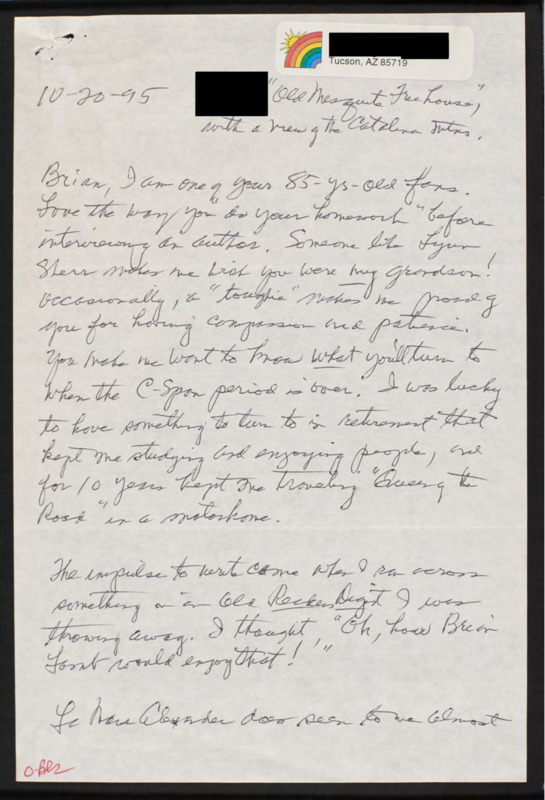 Tucson, AZ 85719
10-20-95
"Old Mesquite Treehouse",
with a view of the Catalina Mtns.
Brian, I am one of your 85-yr-old fans.
Love the way you "do your homework" before
interviewing an author. Someone like Lynn
Sherr makes me wish you were my grandson!
Occasionally, a "toughie" makes me proud of
you for having compassion and patience.
You make me want to know what you'll turn to
when the C-Span period is over. I was lucky
to have something to turn to in retirement that
kept me studying and enjoying people, and
for 10 years kept me traveling the
Road" in a motorhome.
The impulse to write came when I ran across
something in an old Readers Digest I was
throwing away. I thought, "Oh, how Brian
Lamb would enjoy that!"
Alexander does seem to me almost